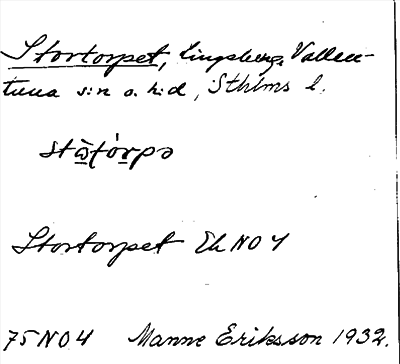 Stortorpet, Lingsberg, Vallen-
tuna s:n o. h:d, Sthlms l.
stω̱ʈó̱rpə
Stortorpet Ek NO 4
75 NO 4 Manne Eriksson 1932.